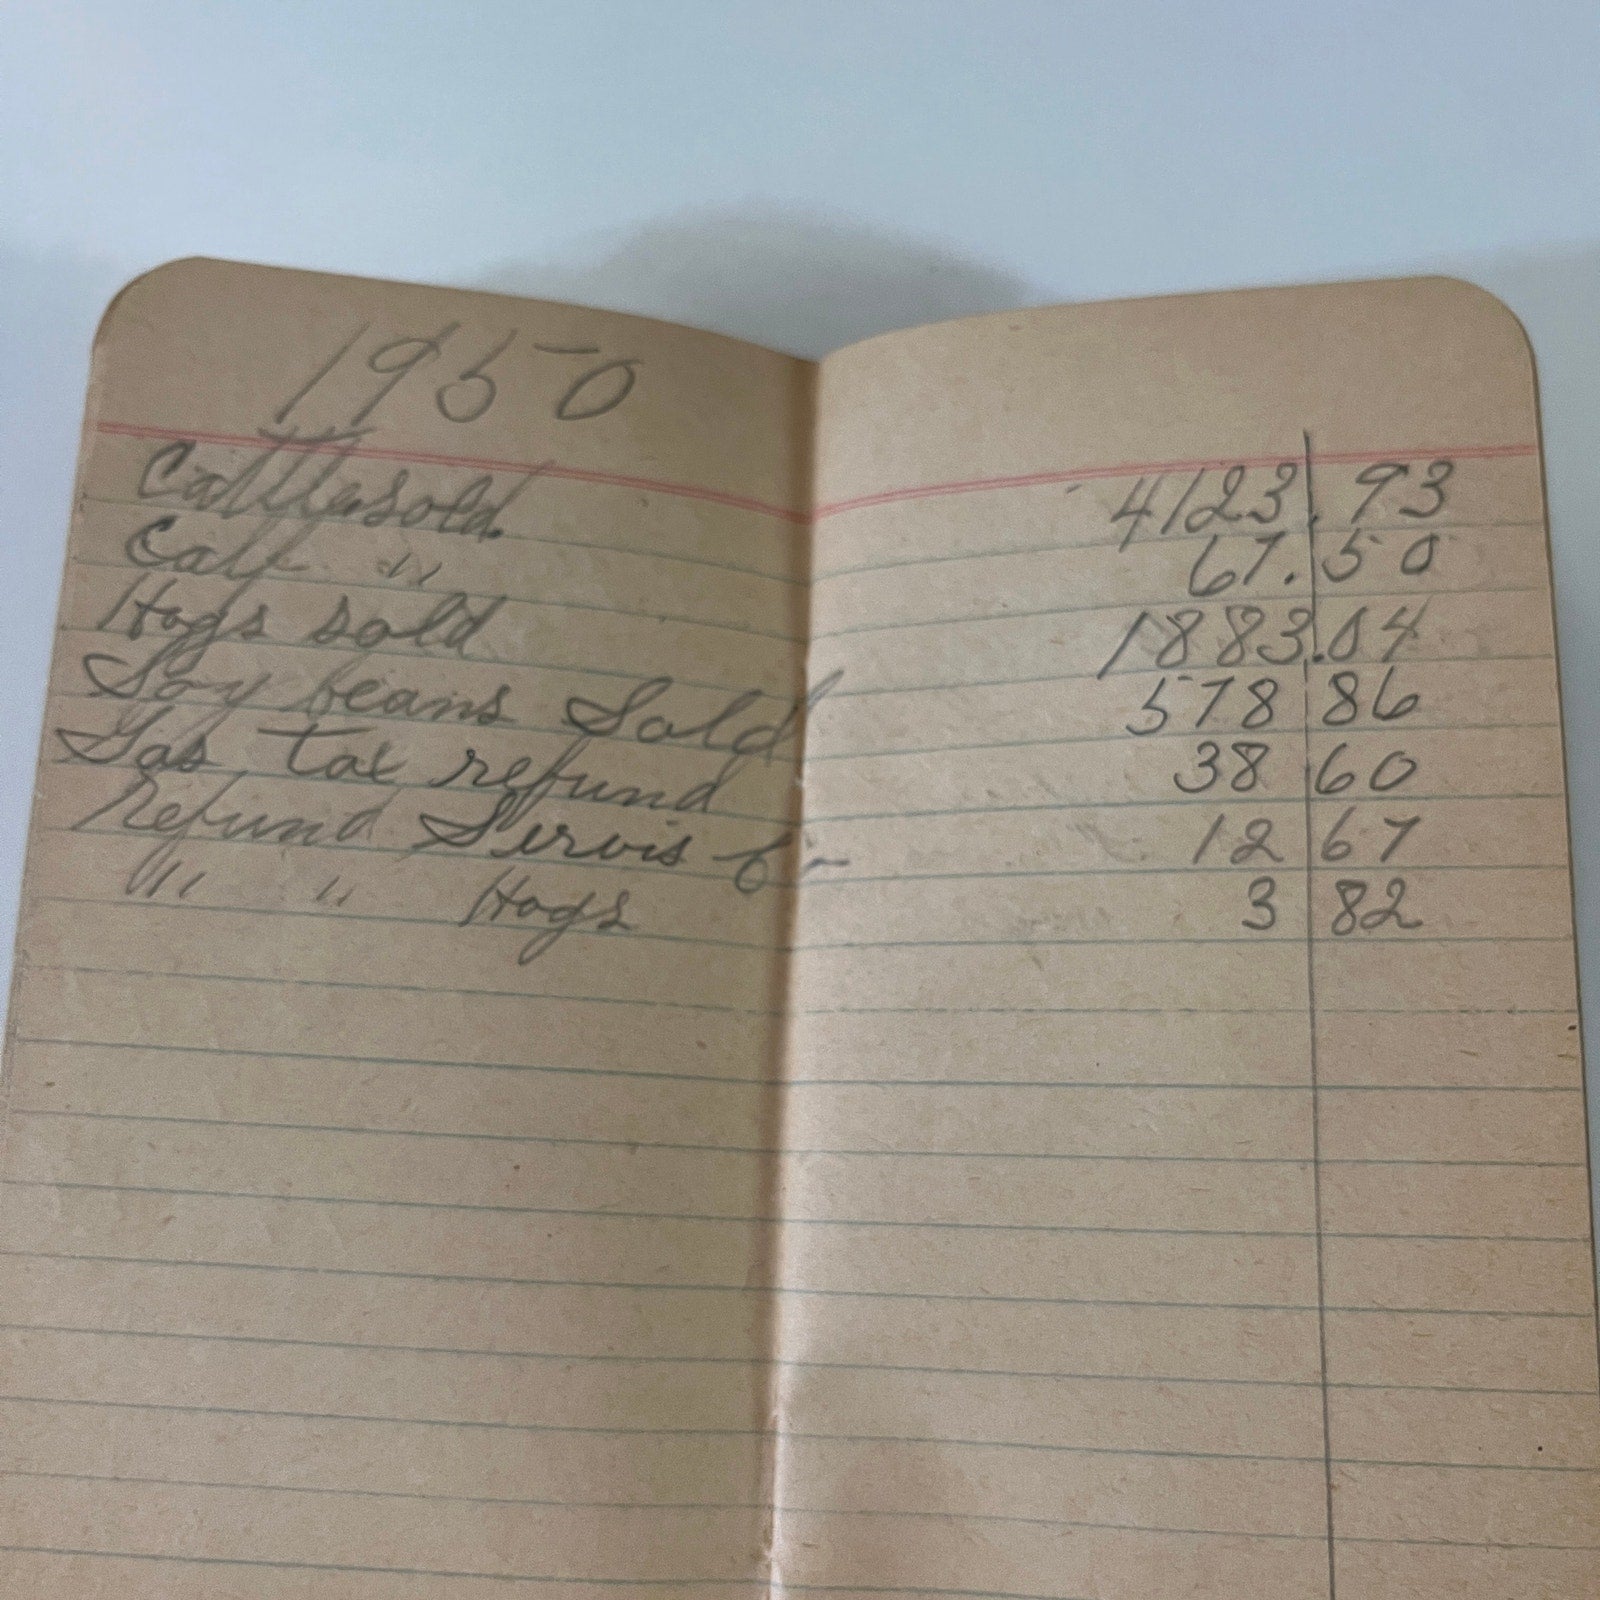 1950
Cattle sold 4123.93
Calf " 67.50
Hogs sold 1883.04
Soy beans Sold 578 86
Gas tax refund 38 60
Refund Servis 12 67
" " Hogs 3 82